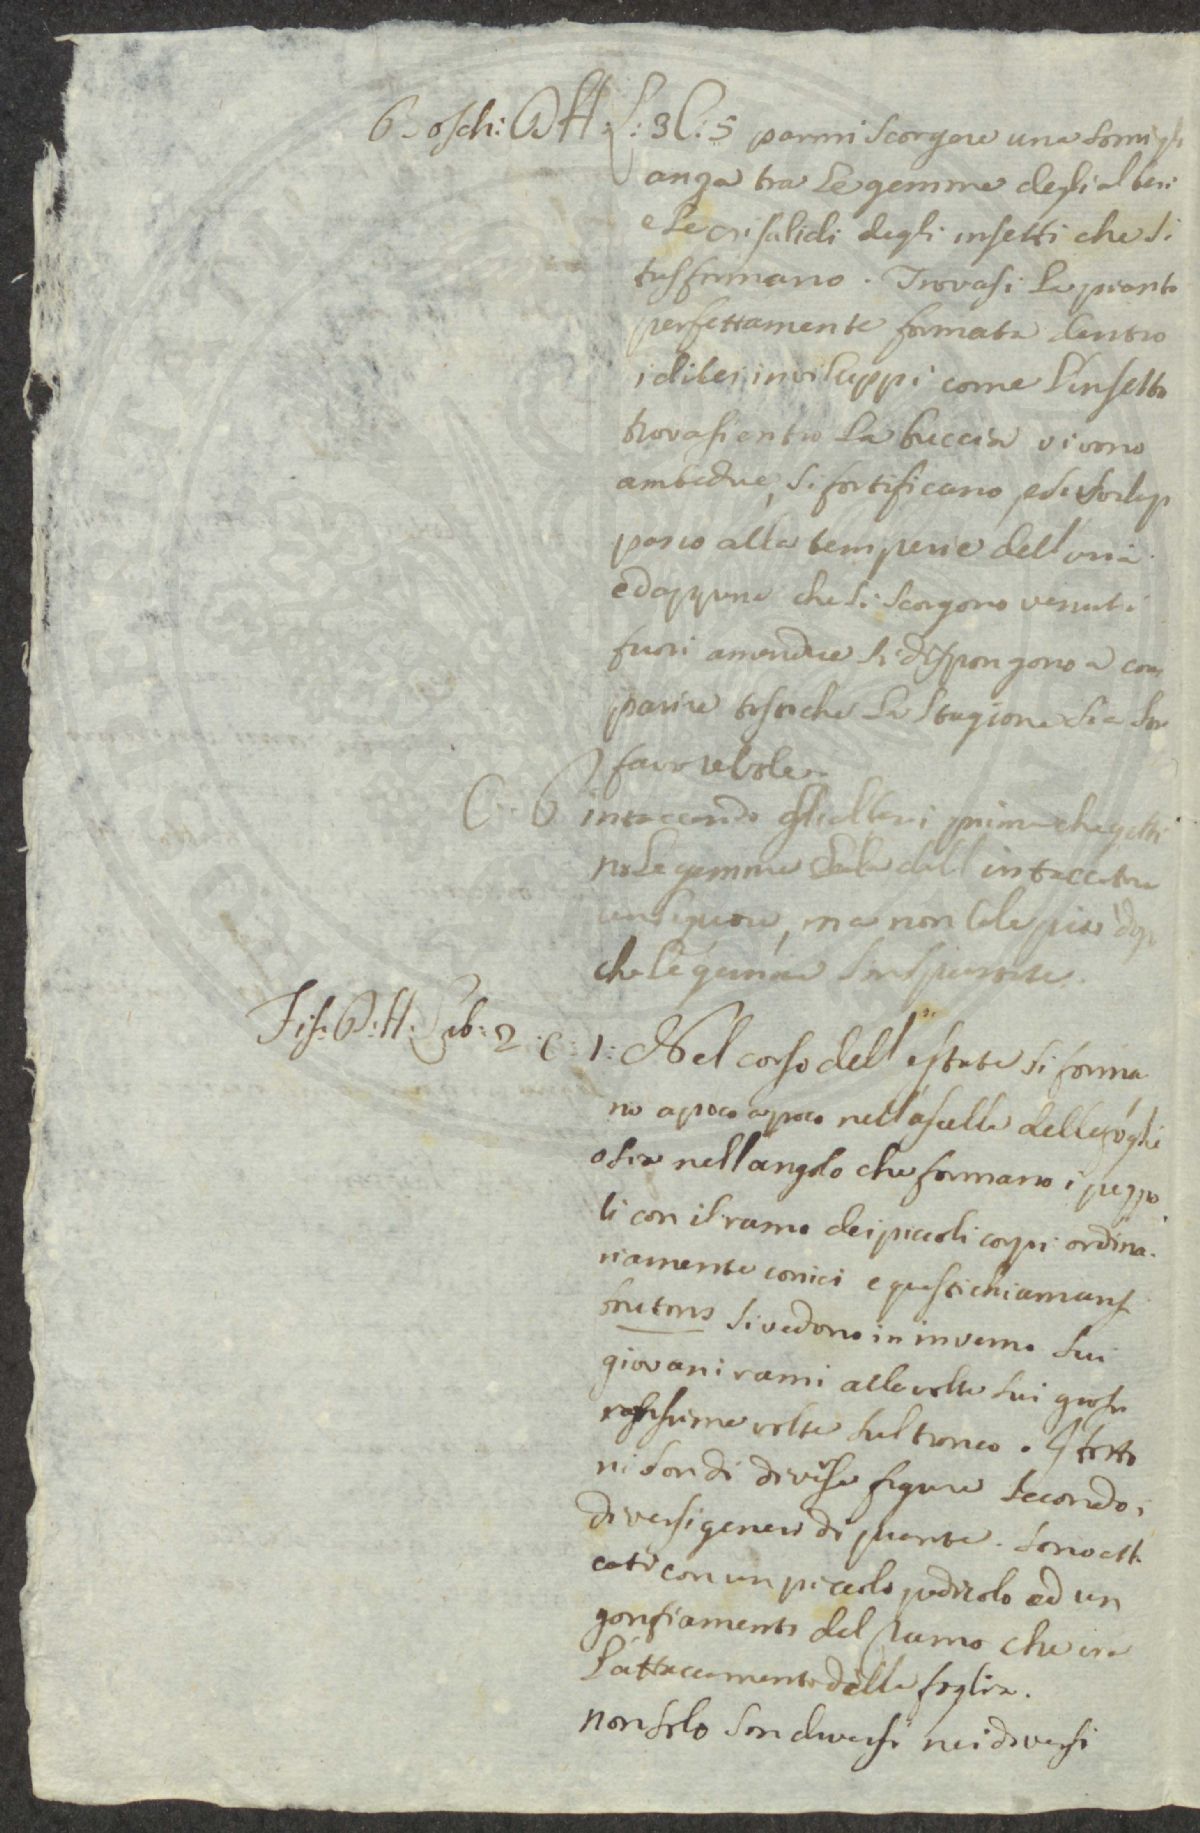 Boschi: Att: L: 3 C: 5 parmi scorgere una somigli
anza tra le gemme degli alberi
e le crisalidi degli insetti che si
tasformano. Trovasi la pianta
perfettamente formata dentro
i di lei inviluppi come l'insetto
trovasi entro la buccia vivono
ambedue, si fortificano, e
alla temperie dell'aria
ed appena che si scorgono venuti
fuori amendue si dispongono a com
parire tosto che la stagione sia
favorevole.
C. 6 intaccando gli alberi prima che getti
no le gemme dall'intaccatura
un liquore, ma non sale più dop
che le gemme son spuntate.
Fis: Att: Lib: 2. C: 1: Nel corso dell'estate si forma
no apoco apoco nell'ascella delle foglie
o sia nell'angolo che formano i pezzo
li con il ramo dei piccoli corpi ordina
riamente conici e questi chiamansi
bottoni si vedono in inverno sui
giovani rami alle volte sui grossi
rarissime volte sul tronco. I botto
ni son di diverse figure secondo i
diversi generi di piante. sono atta
cati con un piccolo pedicolo ad un
gonfiamento del ramo che era
l'attaccamento della foglia.
non solo son diversi nei diversi